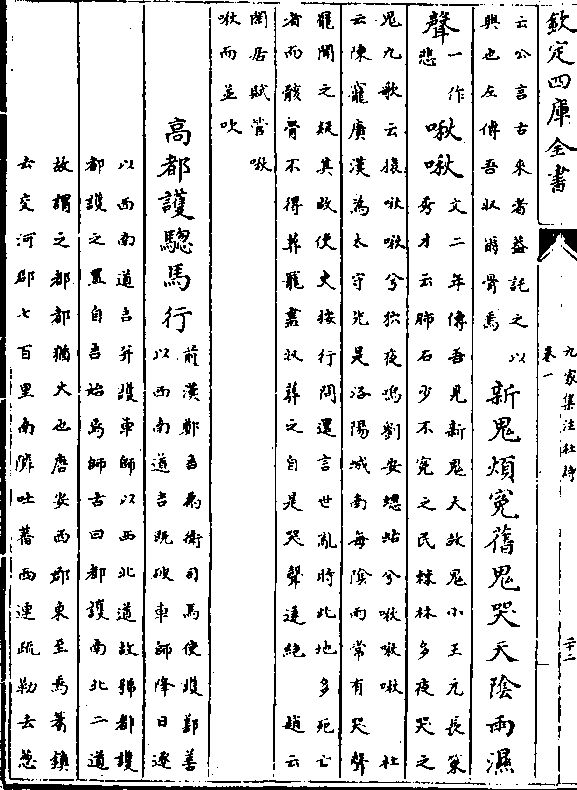 欽定四庫全書
九家集注杜詩
卷一
二十二
云公言古來者益託之以
興也左傳吾收爾骨焉
新鬼煩冤舊鬼哭天陰雨濕
聲
一作
悲
啾啾
文二年傳吾見新鬼大故鬼小王元長策
秀才云肺石少不冤之民棘林多夜哭之
鬼九歌云猨啾啾兮狖夜鳴劉安蟪蛄兮啾啾啾 杜
云陳寵廣漢為太守先是洛陽城南每陰雨常有哭聲
寵聞之疑其故使吏按行問還言世亂時此地多死亡
者而骸骨不得葬寵盡收葬之自是哭聲遂絶 趙云
閒居賦管啾
啾而並吹
高都護驄馬行
前漢鄭吉為衛司馬使護鄯善
以西南道吉既破車師降日逐
以西南道吉并護車師以西北道故號都護
都護之置自吉始焉師古曰都護南北二道
故謂之都都猶大也唐安西郡東至焉耆鎮
去交河郡七百里南隣吐蕃西連疏勒去葱